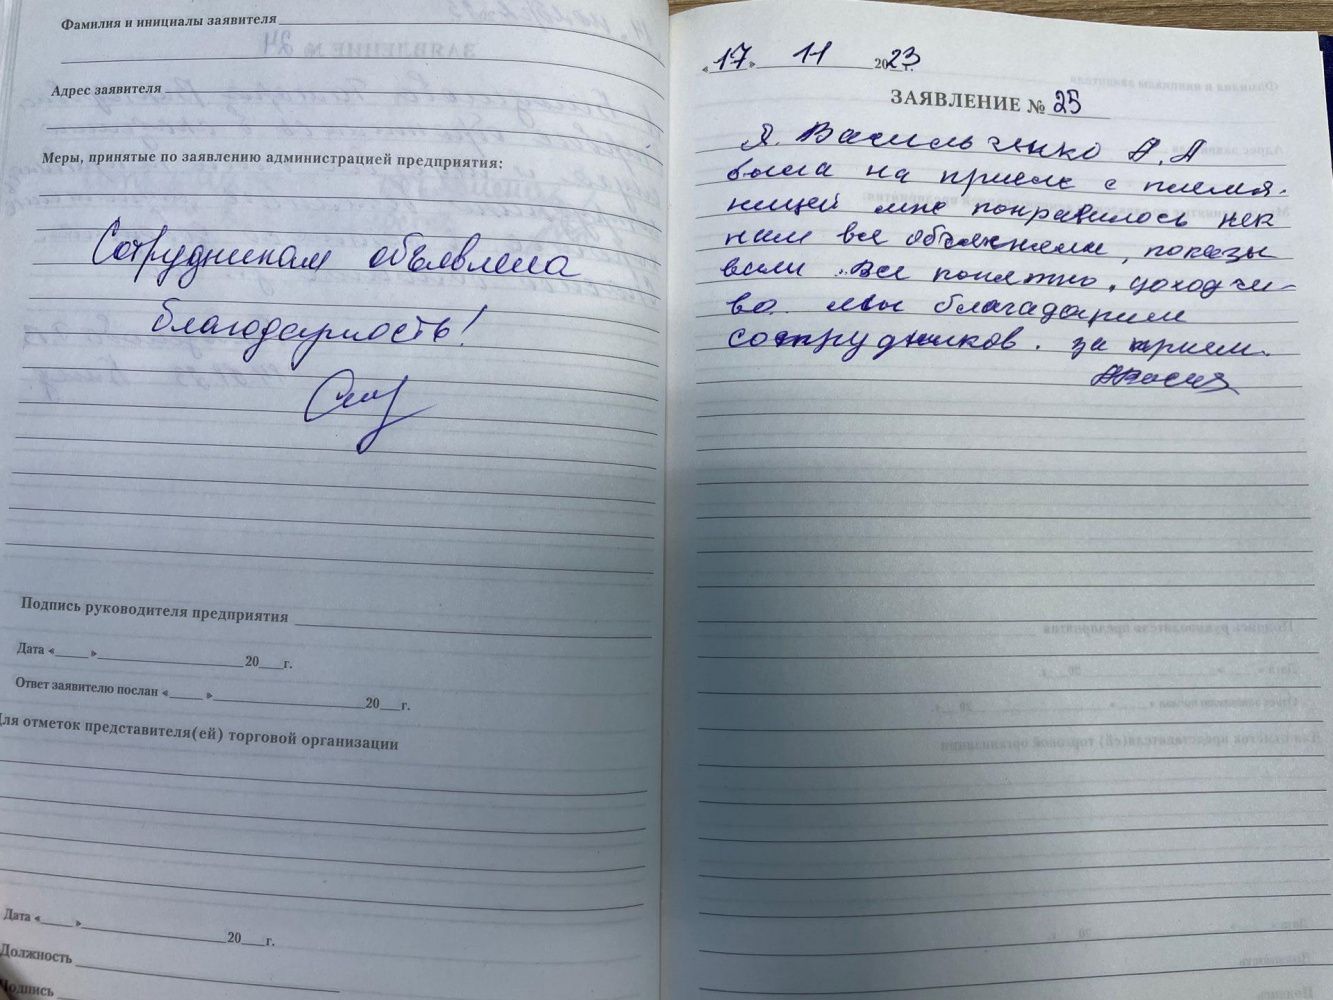 Фамилия и инициалы заявителя
Адрес заявителя
Меры, принятые по заявлению администрацией предприятия:
Сотрудникам объявлена
благодарность!
Подпись руководителя предприятия
Дата «____» ____ 20__г.
Ответ заявителю послан «____» ____ 20__г.
Для отметок представителя(ей) торговой организации
Дата «____» ____ 20__г.
Должность
Подпись
«17» 11 2023 г.
ЗАЯВЛЕНИЕ № 25
Я. Васильченко А.А
была на приеме с племя-
ницей мне понравилось как
нам все объясняли, показы
вали. Все понятно, доходчи-
во мы благадарим
сотрудников. за прием.